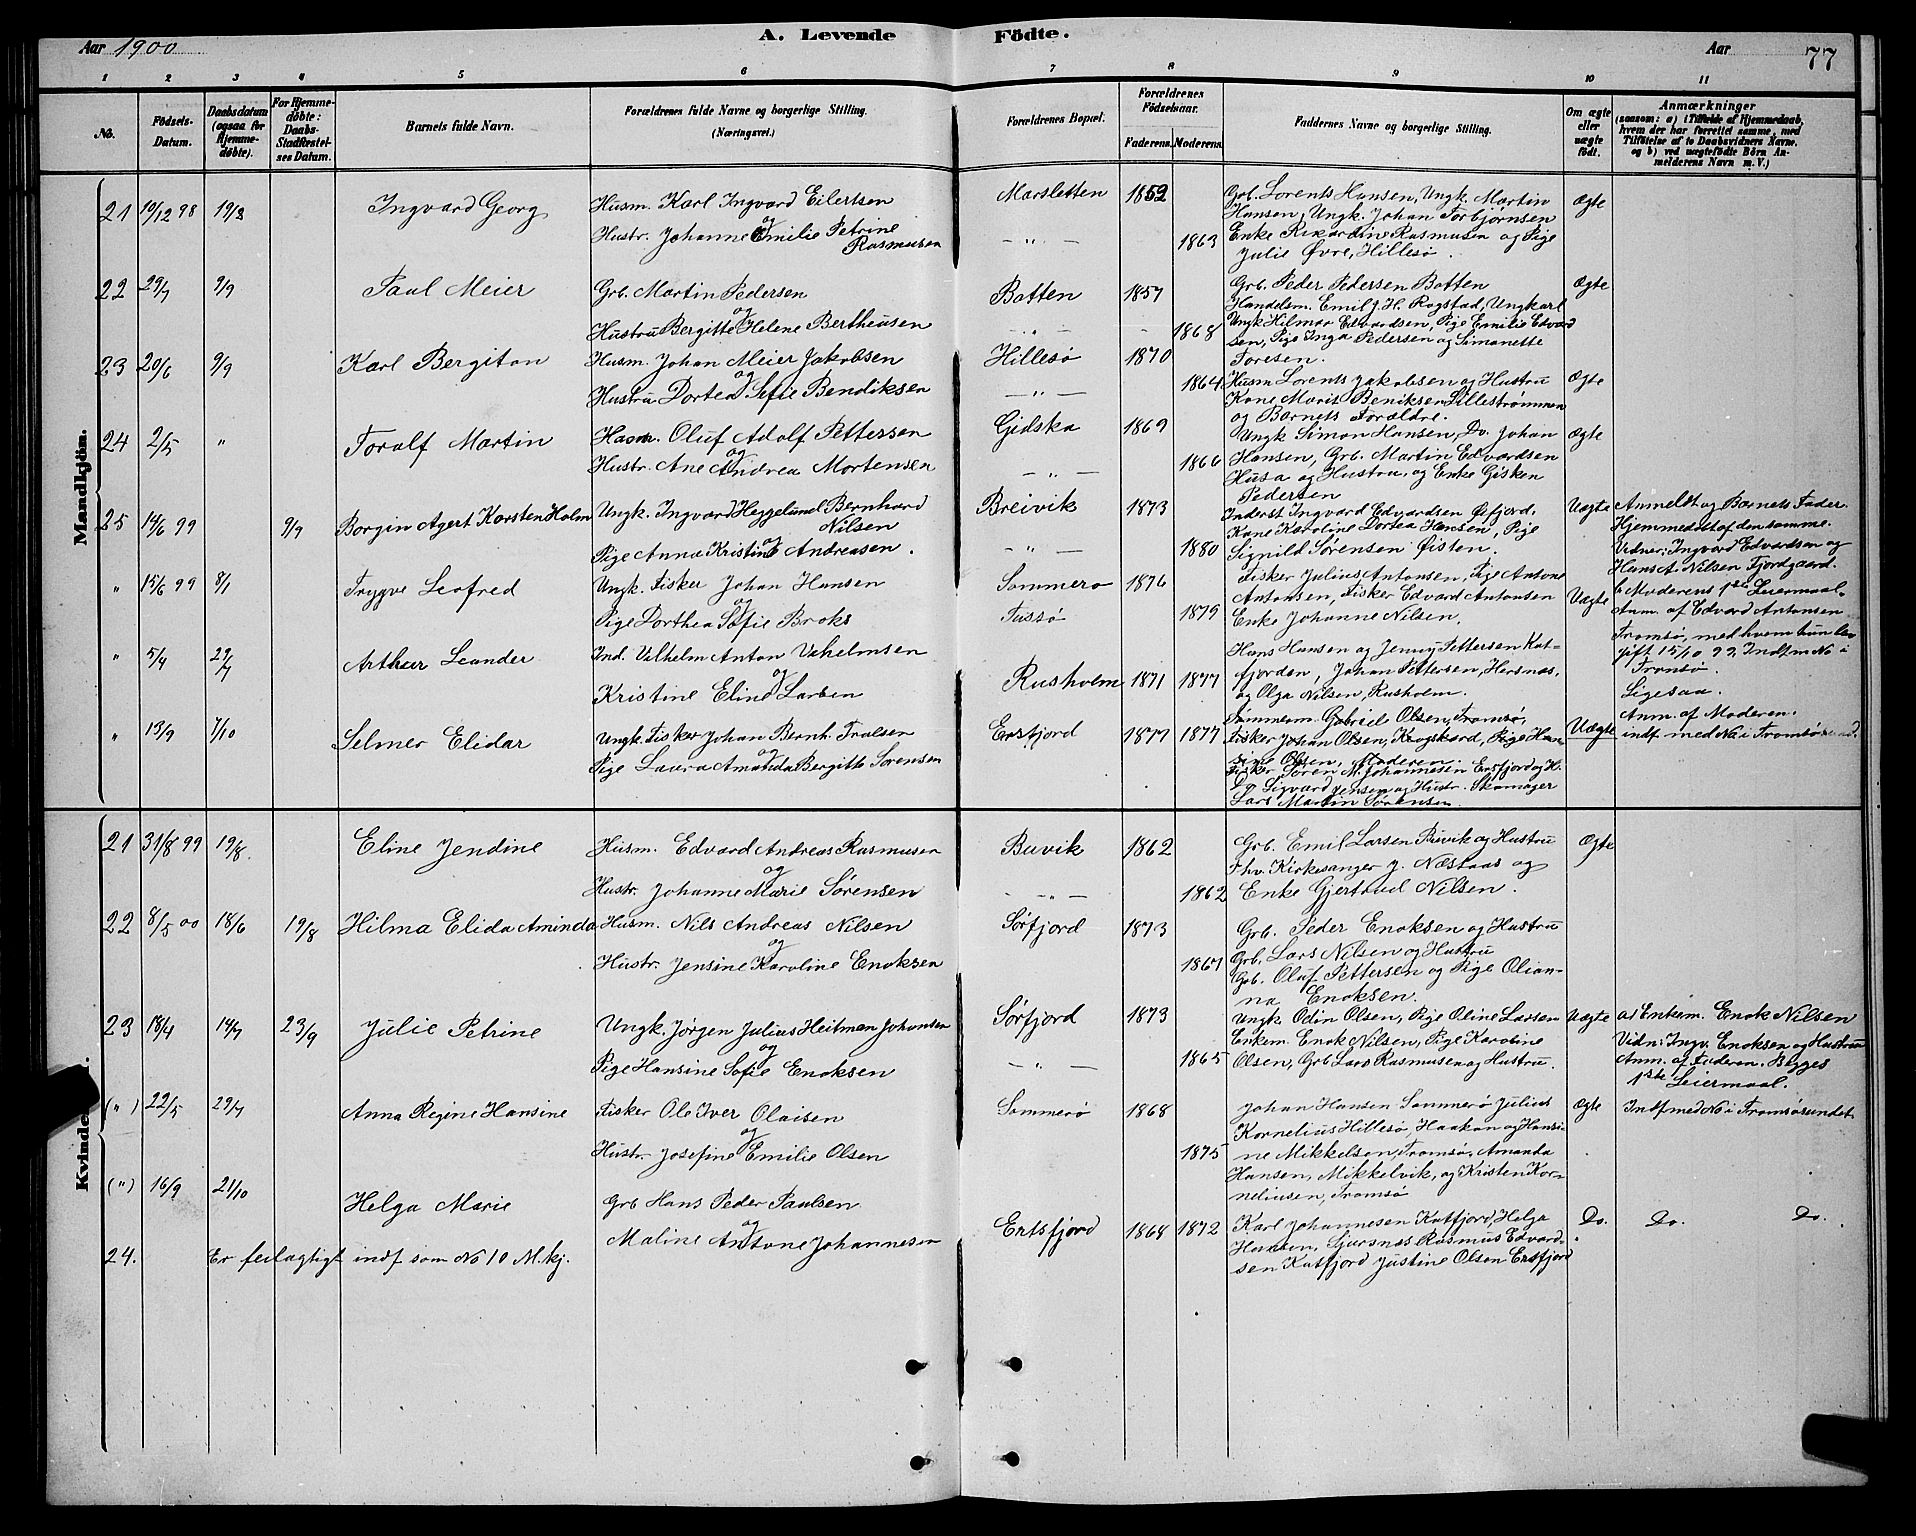 Aar 1900
A. Levende Födte.
Aar
77
1 2 3 4 5 6 7 8 9 10 11
No.
Födsels-Datum.
Daabsdatum (ogsaa for Hjemmedöbte).
For Hjemmedöbte: Daabs-Stadfæstelses Datum.
Barnets fulde Navn.
Forældrenes fulde Navne og borgerlige Stilling. (Næringsvei.)
Forældrenes Bopæl.
Forældrenes Födselsaar.
Faderens. Moderens.
Faddernes Navne og borgerlige Stilling.
Om ægte eller uægte födt.
Anmærkninger (saasom: a) i Tilfælde af Hjemmedaab, hvem der har forrettet samme, med Tilföielse af to Daabsvidners Navne, og b) ved uægtefödte Börn Anmelderens Navn m. V.)
Mandkjön.
21 19/12 98 19/3 Ingvard Georg
Husm. Karl Ingvard Eilertsen
og
Hustr. Johanne Emilie Petrine
Rasmusen
Marsletten 1852
– " – 1863
Grb. Lorents Hansen, Ungk. Martin
Hansen, Ungk. Johan Torbjørnsen
Enke Rikardine Rasmusen og Pige
Julie Øvre, Hillesø.
Ægte
22 29/7 9/9 Paul Meier
Grb. Martin Pedersen
og
Hustru Bergitte Helene Bertheusen
Botten 1857
– " – 1868
Grb. Peder Pedersen Botten
Handelsm. Emil J. H. Rogstad, Ungkarl
Ungk Hilmar Edvardsen, Pige Emilie Edvard
sen, Pige Inga Pedersen og Simonette
Toresen.
Ægte
23 20/6 9/9 Karl Bergiton
Husm. Johan Meier Jakobsen
og
Hustru Dortea Sofie Bendiksen
Hillesø 1870
– " – 1864
Husm Lorents Jakobsen og Hustru
Kone Marit Beniksen Lillestrømmen
og Barnets Forældre.
Ægte
24 2/5 " Toralf Martin
Husm. Oluf Adolf Pettersen
og
Hustr. Ane Andrea Mortensen
Gidska 1869
– " – 1866
Ungk Simon Hansen, Do. Johan
Hansen, Grb. Martin Edvardsen
Husa og Hustru, og Enke Gisken
Pedersen
Ægte
25 14/6 99 9/9 Borgin Agert Karsten Holm
Ungk. Ingvard Heggelund Bernhard
Nilsen
og
Pige Anna Kristine Andreasen.
Breivik 1873
– " – 1880
Inderst Ingvard Edvardsen Øfjord.
Kone Karoline Dortea Hansen, Pige
Signild Sørensen Øisten.
Uægte
Anmeldt og Barnets Fader
Hjemmedøbt af densamme.
Vidner: Ingvard Edvardsen og
Hans A. Nilsen Fjordgaard.
" 15/6 99 8/1 Trygve Leofred
Ungk. Fisker Johan Hansen
og
Pige Dorthea Sofie Broks
Sommerø 1876
Tussø 1879
Fisker Julius Antonsen, Pige Antone
Antonsen, Fisker Edvard Antonsen
Enke Johanne Nilsen.
Uægte
b Moderens 1ste Leiermaal.
Anm. af Edvard Antonsen
Tromsø, med hvem hun blev
gift 15/10 99. Indf m No i
Tromsø.
" 5/4 29/7 Arthur Leander
Ind. Vilhelm Anton Vihelmsen
og
Kristine Eline Larsen
Rusholm 1871 1877
Hans Hansen og Jenny Pettersen Kat-
fjorden, Johan Pettersen, Hersnæs,
og Olga Nilsen, Rusholm.
Ligesaa.
" 13/9 7/10 Selmer Elidar
Ungk. Fisker Johan Bernh. Trulsen
og
Pige Laura Amanda Bergitte Sørensen
Ersfjord 1877 1877
Tømmerm. Gabriel Olsen, Tromsø,
Fisker Johan Olsen, Krogskard, Pige Han
sine Olsen, Moderen.
Fisker Søren M. Johannesen Ersfjord og H.
Sigvard Jensen og Hustr. Skamager
Lars Martin Sørensen
Uægte
Anm. af Moderen.
indf med No i Tromsøsund.
Kvinde
21 31/8 99 19/8. Eline Jendine
Husm. Edvard Andreas Rasmusen
og
Hustr. Johanne Marie Sørensen
Buvik 1862
– " – 1862
Grb. Emil Larsen Buvik og Hustru
Fhv. Kirkesanger J. Næstaas og
Enke Gjertrud Nilsen.
Ægte
22 8/5 00 18/6 19/8 Hilma Elida Aminda
Husm. Nils Andreas Nilsen
og
Hustr. Jensine Karoline Enoksen
Sørfjord 1873
1867
Grb. Peder Enoksen og Hustru
Grb. Lars Nilsen og Hustru
Grb. Oluf Pettersen og Pige Olian-
na Enoksen.
23 18/4 14/7 23/9 Julie Petrine
Ungk. Jørgen Julius Heitman Johansen
og
Pige Hansine Sofie Enoksen
Sørfjord 1873
– " – 1865
Ungk. Odin Olsen, Pige Oline Larsen
Enkem. Enok Nilsen, Pige Karoline
Olsen, Grb Lars Rasmusen og Hustru.
Uægte
a) Enkem. Enok Nilsen
Vidn: Ingv. Enoksen og Hustru
Anm. af Faderen. Begges
1ste Leiermaal.
(") 22/5 29/7 Anna Regine Hansine
Fisker Ole Iver Olaisen
og
Hustr. Josefine Emilie Olsen
Sommerø 1868
1875
Johan Hansen Sommerø Julius
Kornelius Hillesø, Haakon og Hansi-
ne Mikkelsen, Tromsø, Amanda
Hansen, Mikkelvik, og Kristen Kor-
neliusen, Tromsø
Ægte
Indf med No i Tromsøsundet
(") 16/9 21/10 Helga Marie
Grb Hans Peder Paulsen
og
Maline Antone Johannesen
Ertsfjord 1868 1872
Karl Johannesen Katfjord, Helga
Hansen, Sjursnes Rasmus Edvard-
sen Katfjord Justine Olsen Ersfjord
Do. Do. Do.
24. Er feilagtigt indf som No 10 M.kj.